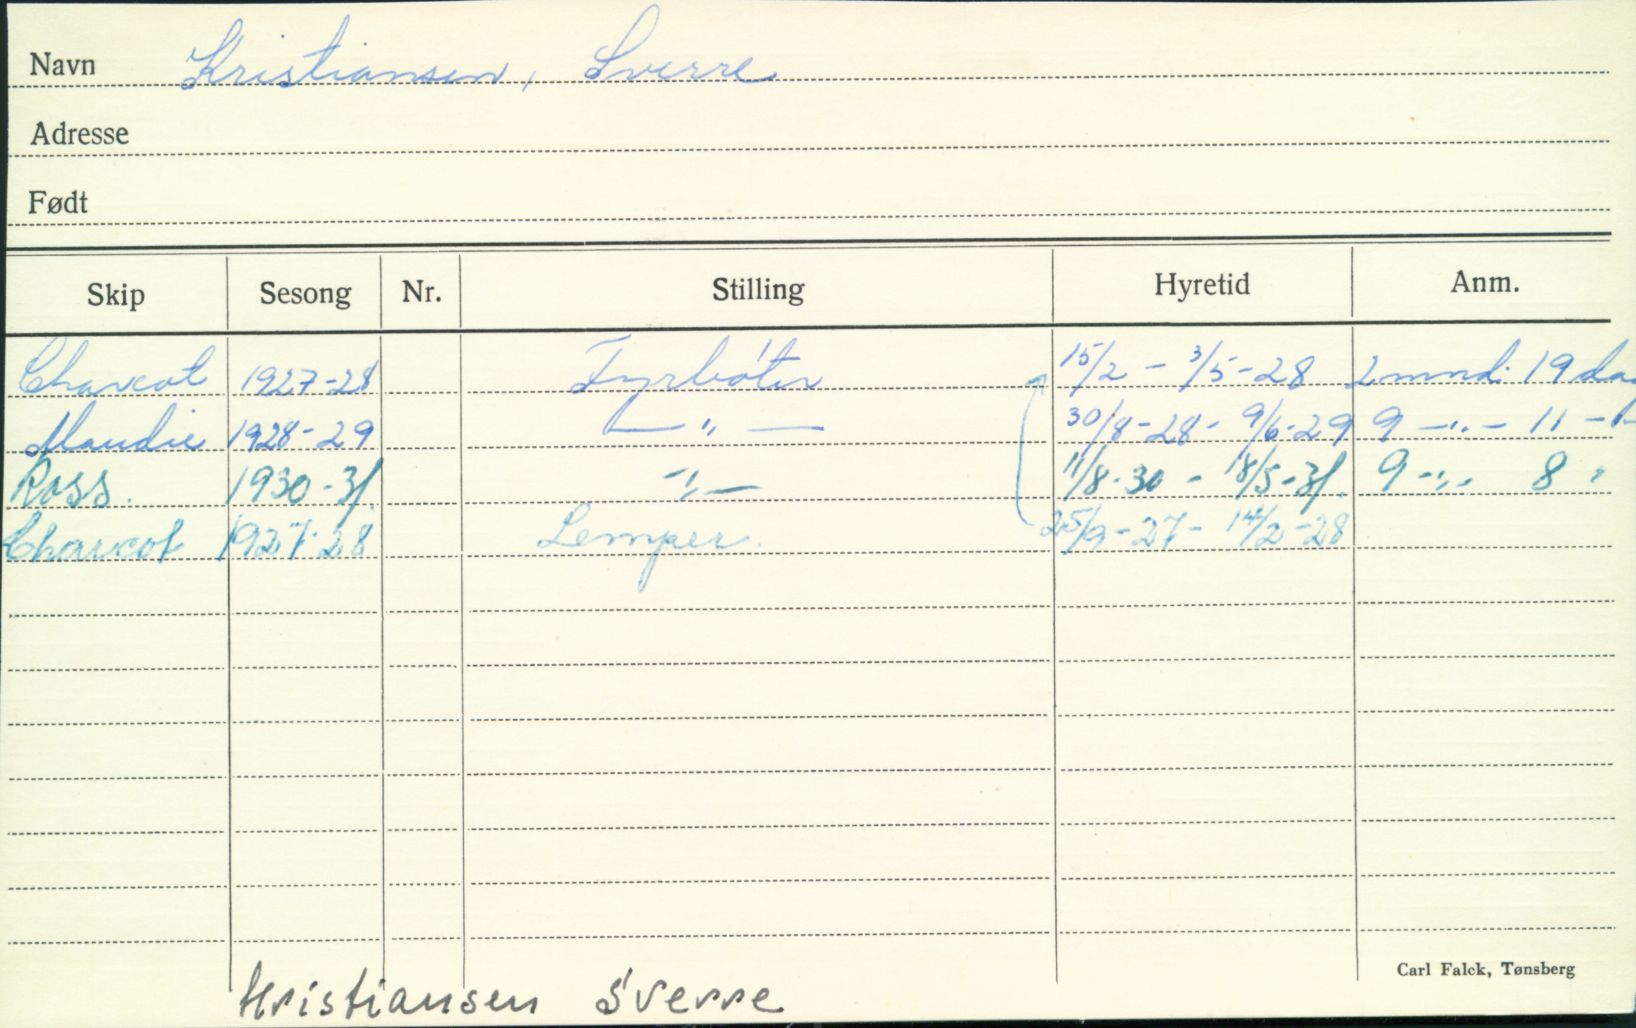 Navn Kristiansen, Sverre
Adresse
Født
Skip Sesong Nr. Stilling Hyretid Anm.
Charcot 1927-28 Fyrbøter 15/2 - 3/5-28 2 mnd. 19 da
Maudie 1928-29 — " — 30/8-28 - 9/6-29 9 -"- 11 -"-
Ross. 1930-31 -"- 11/8-30 - 18/5-31. 9 -"- 8 "
Charcot 1927-28 Lemper. 25/9-27 - 14/2-28
Carl Falck, Tønsberg
Kristiansen Sverre